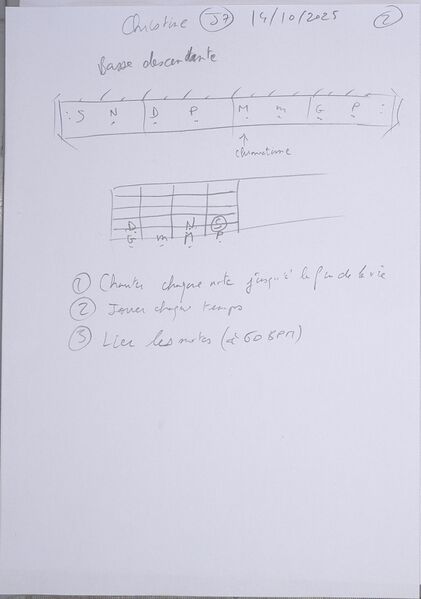 Christine J7 14/10/2025 2
Basse descendante
: S N D P M m G P :
↑
chromatisme
D N S
G m M P
① Chanter chaque note jusqu'à la fin de la vie
② Jouer chaque temps
③ Lier les notes (à 60 BPM)